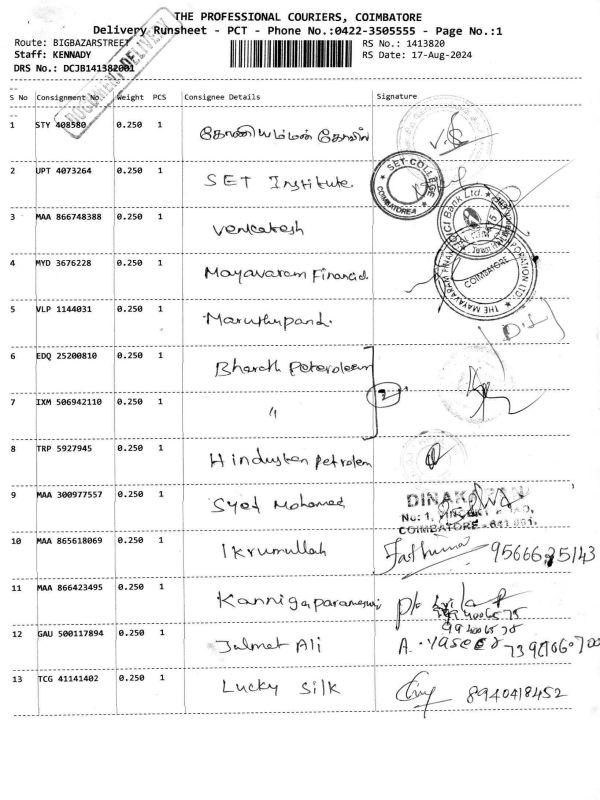 THE PROFESSIONAL COURIERS, COIMBATORE
Delivery Runsheet - PCT - Phone No.:0422-3505555 - Page No.:1
Route: BIGBAZARSTREET
RS No.: 1413820
Staff: KENNADY
RS Date: 17-Aug-2024
DRS No.: DCJB141382001
DOCUMENT DELIVERY
S No Consignment No. Weight PCS Consignee Details Signature
1 STY 408580 0.250 1 கோணியம்மன் கோவில்
2 UPT 4073264 0.250 1 SET Institute
SET COLLEGE
COIMBATORE
3 MAA 866748388 0.250 1 Venkatesh
ICICI Bank Ltd.
4 MYD 3676228 0.250 1 Mayavaram Financial
THE MAYAVARAM FINANCIAL CORPORATION LTD.
COIMBATORE
5 VLP 1144031 0.250 1 Maruthupandi
6 EDQ 25200810 0.250 1 Bharath Peteroleum
2
7 IXM 506942110 0.250 1 "
8 TRP 5927945 0.250 1 Hindustan petrolem
9 MAA 300977557 0.250 1 Syed Mohamed
DINAKARAN
No: 1,
COIMBATORE - 641 001.
10 MAA 865618069 0.250 1 Ikrumullah Fathima
11 MAA 866423495 0.250 1 Kannigaparameswari
9944006575
12 GAU 500117894 0.250 1 Jalmet Ali A. Yaseer
13 TCG 41141402 0.250 1 Lucky Silk 8940418452